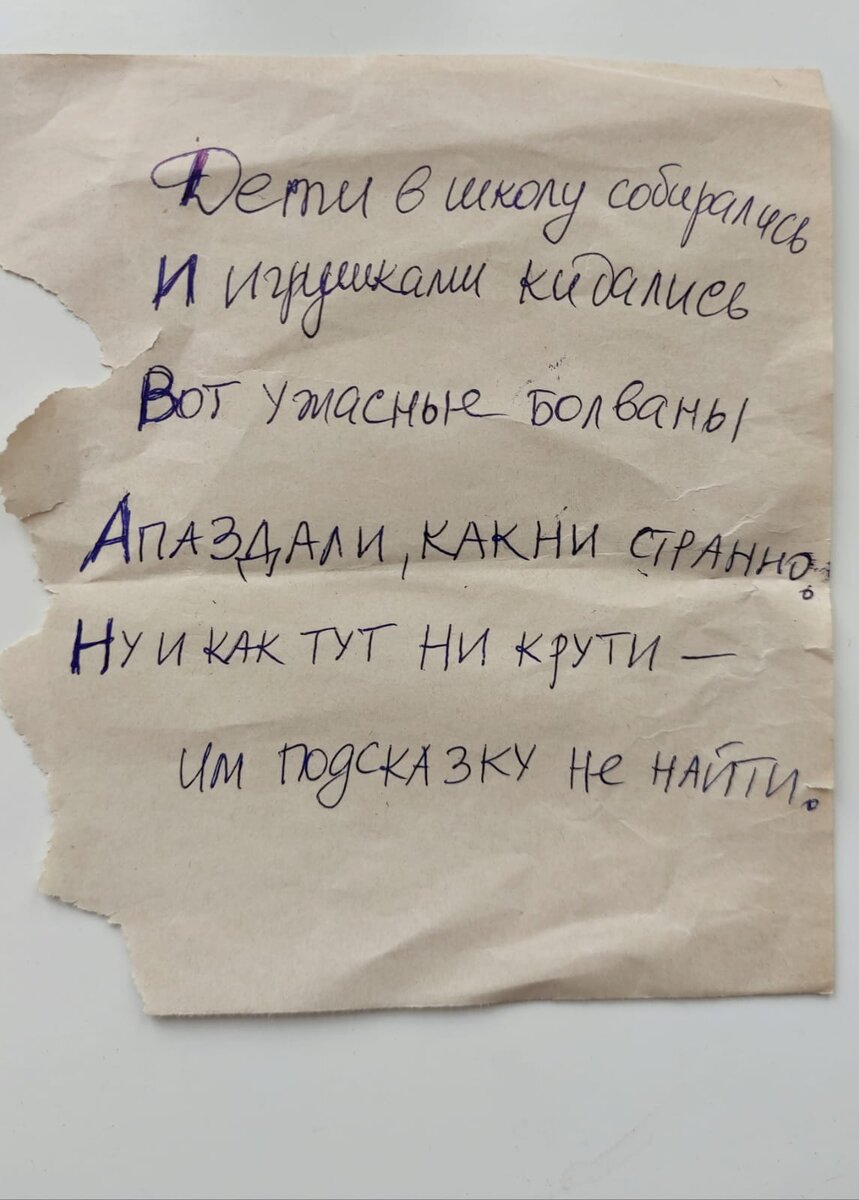 Дети в школу собирались
И игрушками кидались
Вот ужасные болваны
Апаздали, как ни странно.
Ну и как тут ни крути —
им подсказку не найти.